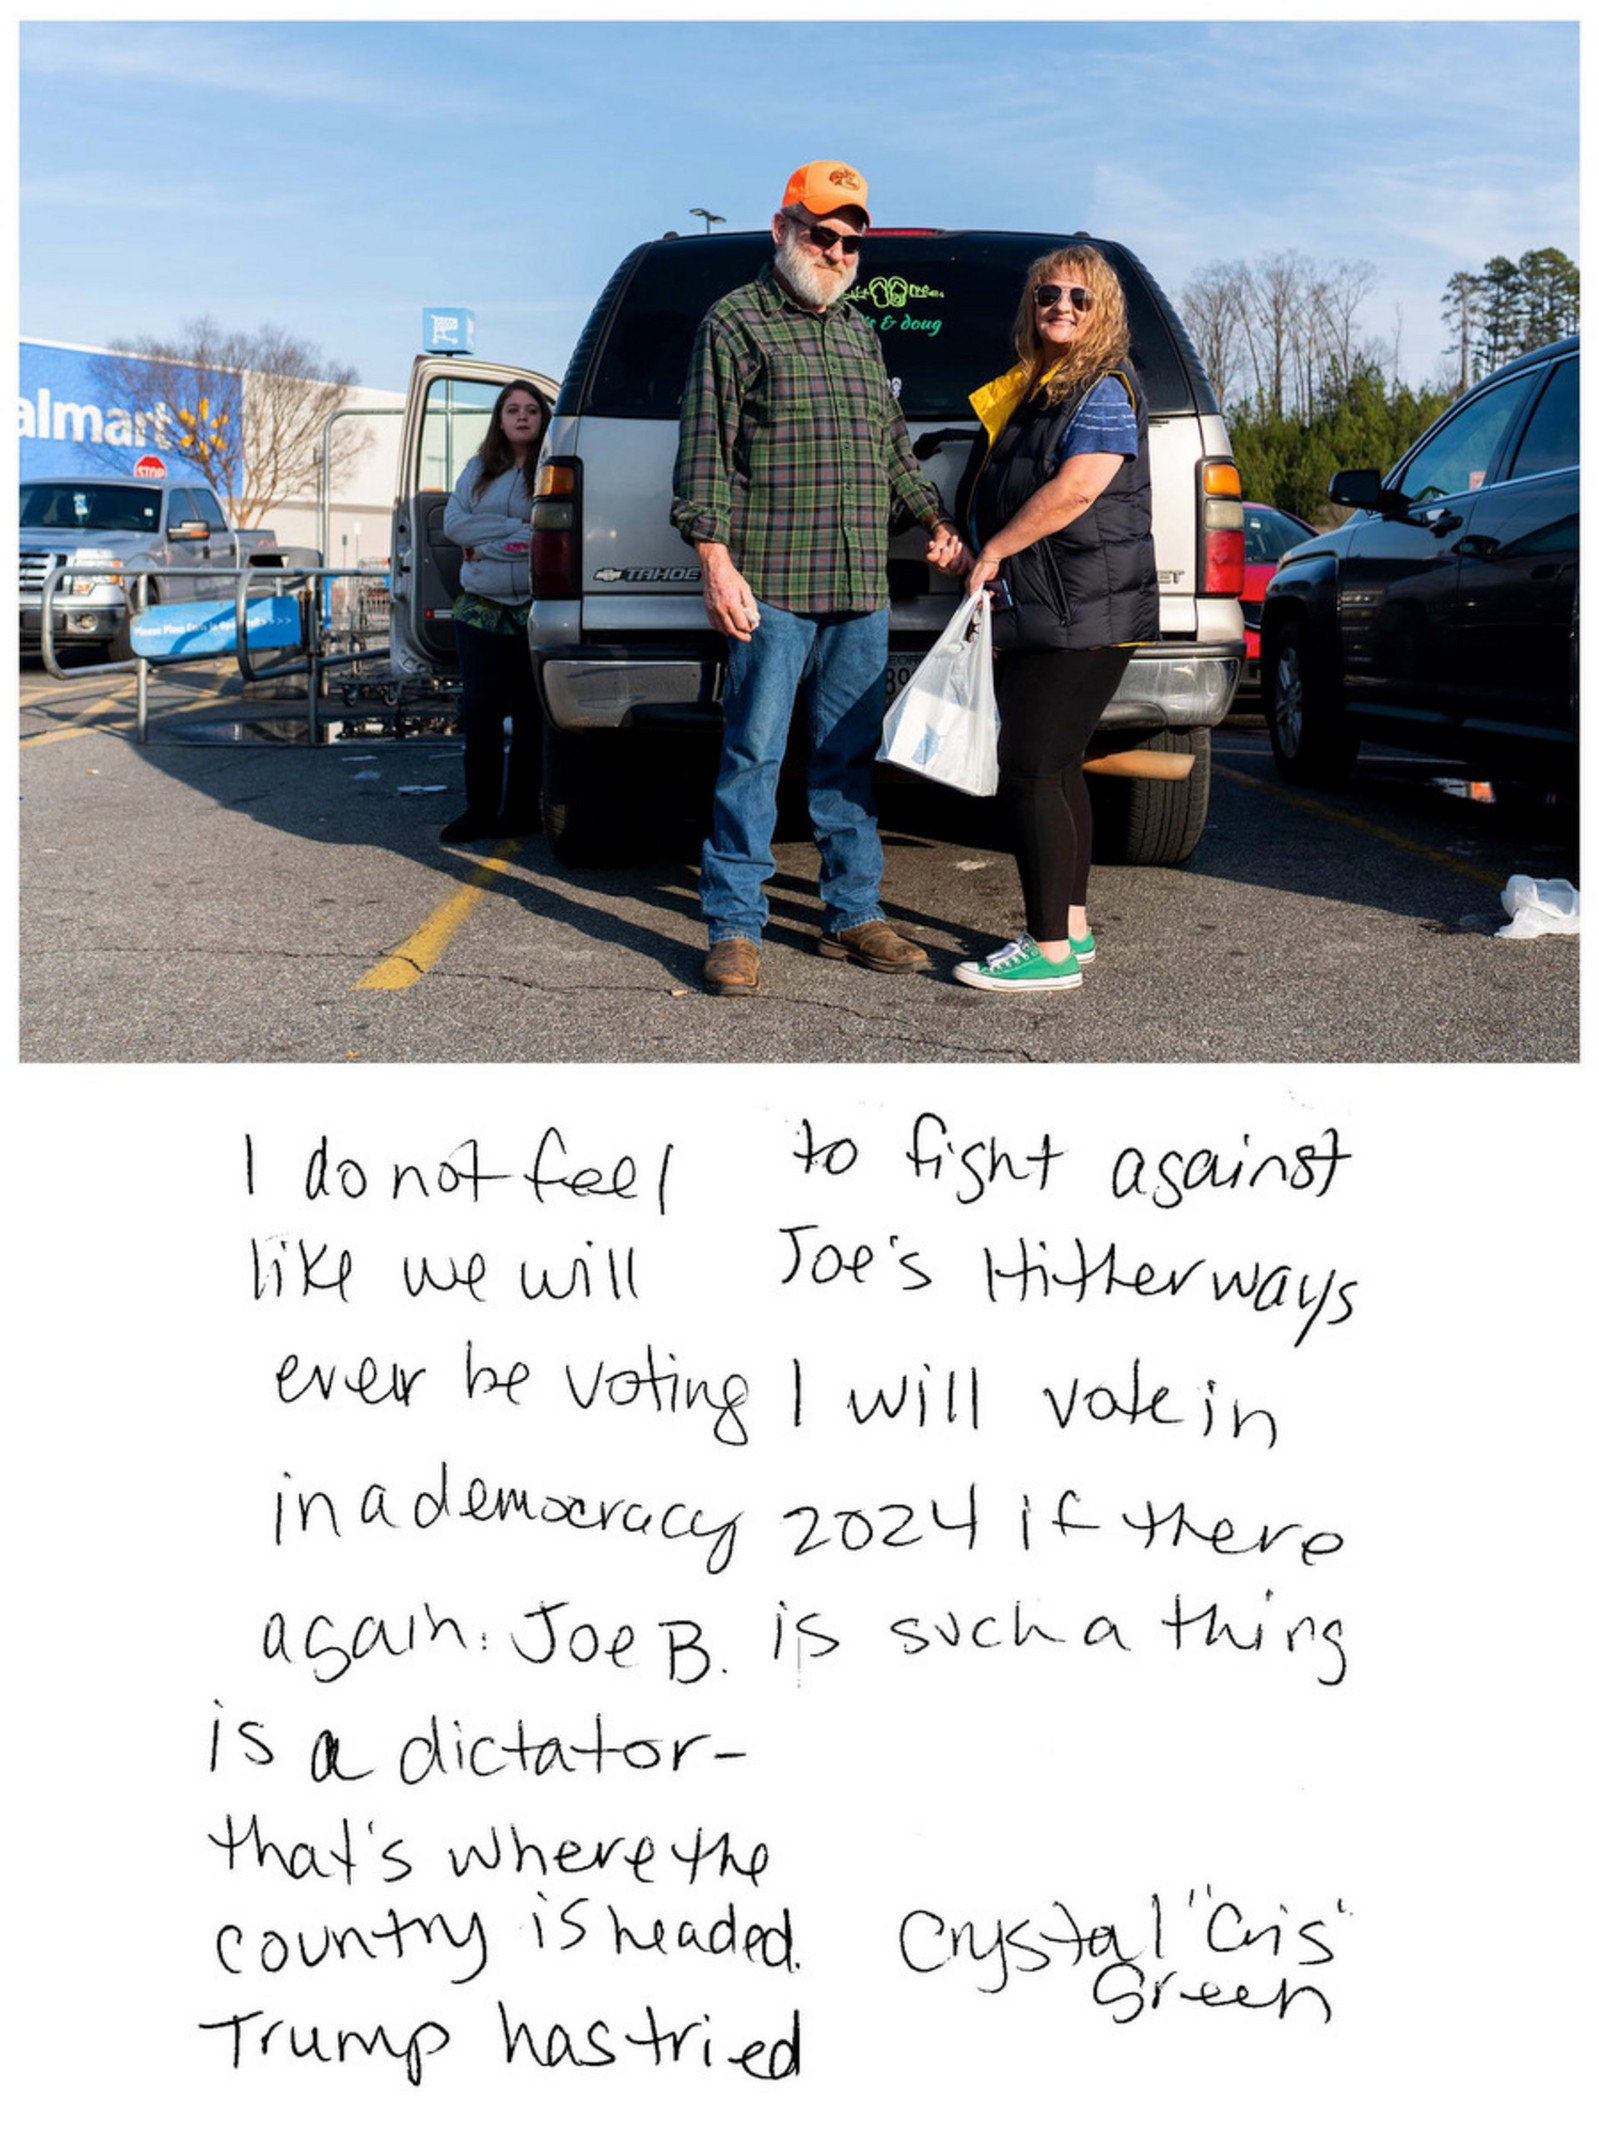 almart
STOP
& doug
TAHOE
I do not feel
like we will
ever be voting
in a democracy
again. Joe B.
is a dictator-
that's where the
country is headed.
Trump has tried
to fight against
Joe's Hitler ways
I will vote in
2024 if there
is such a thing
Crystal "Cris"
Green